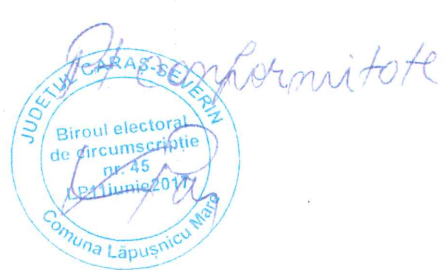 Pt conformitate
JUDEȚUL CARAȘ-SEVERIN
Biroul electoral
de circumscripție
nr. 45
LP11iunie2017
Comuna Lăpușnicu Mare